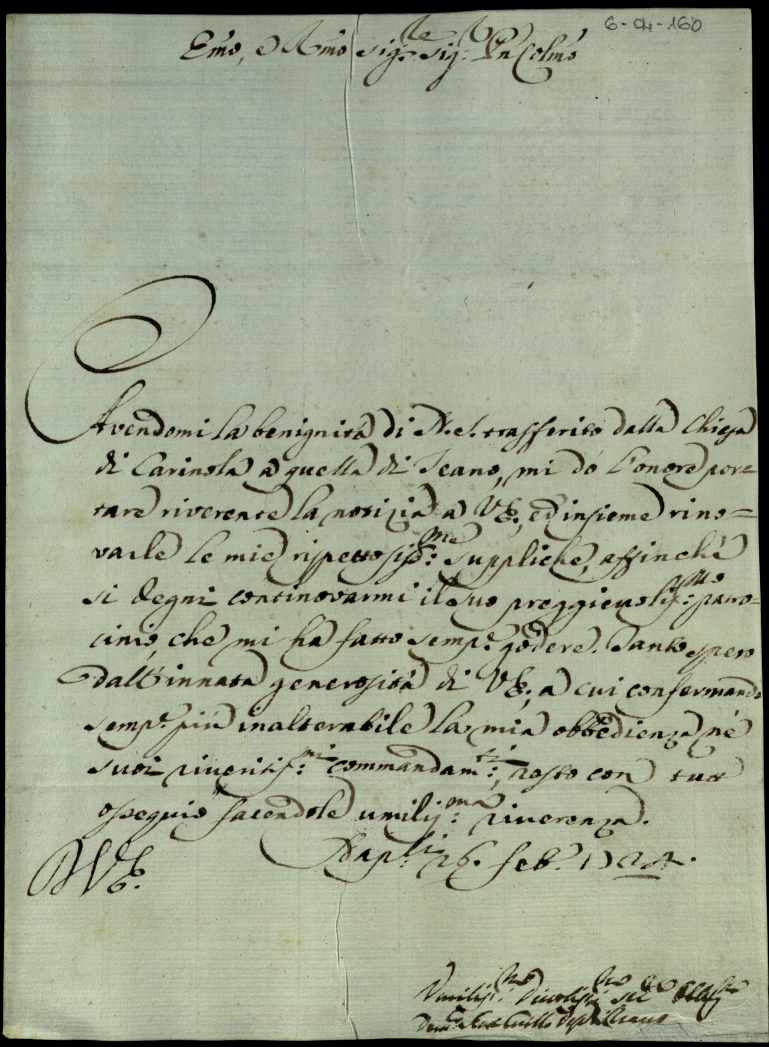 6-04-160
Emo, e Rmo Sig.re Sig.r Pñ Colmo
Avendomi la benignità di N. S. trasferito dalla Chiesa
di Carinola a quella di Teano, mi dò l'onore por=
tare riverente la notizia a VE:, ed insieme rino=
varle le mie rispettosiss:me suppliche, affinché
si degni continovarmi il suo preggievoliss:mo patro=
cinio, che mi ha fatto semp:e godere. Tanto spero
dall'innata generosità di VE:, a cui confermando
semp:e più inalterabile la mia obbedienza né
suoi riveritiss:mi commandam:ti, resto con tutt
ossequio facendole umiliss:ma riverenza.
Nap:li 26. Feb:o 1724.
D VE:
Umiliss:mo Divotiss:mo Ser